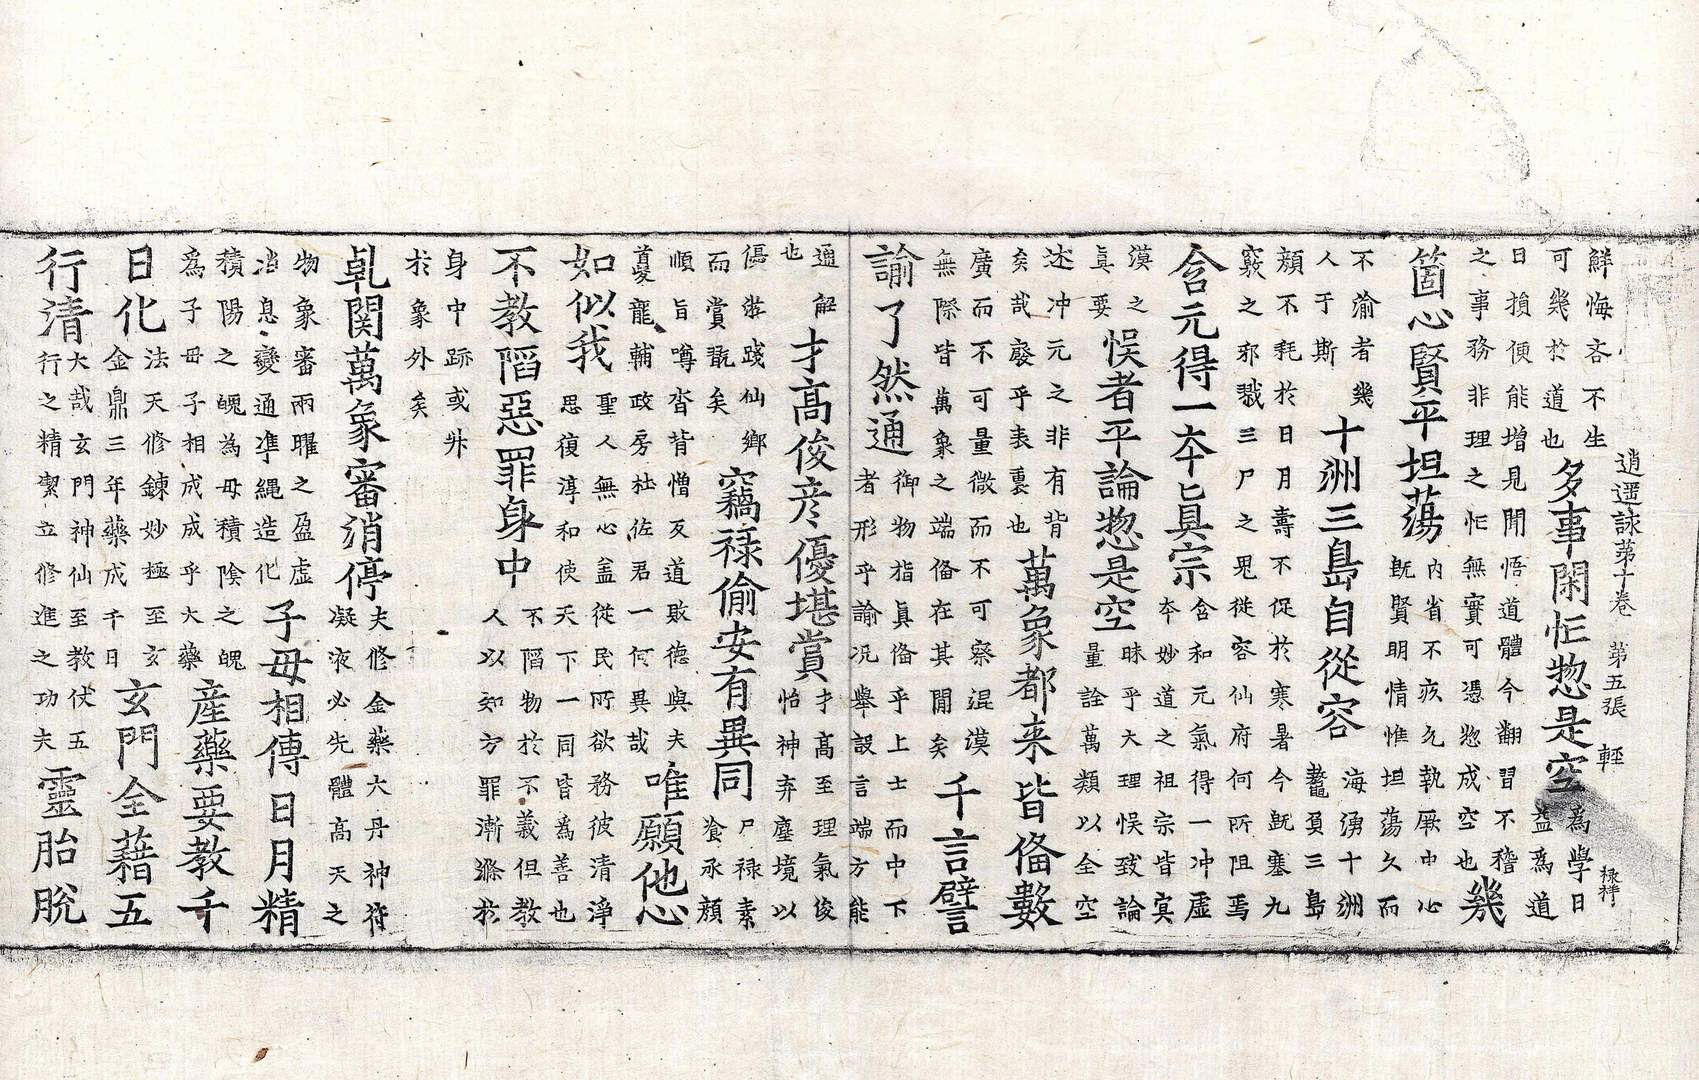 逍遥詠苐十卷　第五張　輕　禄祥
鮮悔吝不生
可幾於道也
多事閑忙惣是空
為學日
益為道
日損便能增見聞悟道體今翻習不稽
之事務非理之忙無實可憑惣成空也
幾
箇心賢平坦蕩
內省不疚允執厥中心
既賢明情惟坦蕩久而
不渝者幾
人于斯
十洲三島自從容
海湧十洲
鼇負三島
顏不秏於日月壽不促於寒暑今既塞九
竅之邪戮三尸之鬼從容仙府何所阻焉
含元得一夲真宗
含和元氣得一冲虛
夲妙道之祖宗皆寘
漠之
真要
悮者平論惣是空
昧乎大理悮致論
量詮萬類以全空
述冲元之非有背
矣哉廢乎表裏也
萬象都来皆俻數
廣而不可量微而不可察混漠
無際皆萬象之端俻在其間矣
千言譬
諭了然通
御物指真俻乎上士而中下
者形乎諭况舉設言端方能
通解
也
才高俊彦優堪賞
才高至理氣俊
怡神弃塵境以
優遊踐仙鄉
而賞翫矣
竊禄偷安有異同
尸禄素
飡承顏
順旨噂沓背憎反道敗德與夫
夔龍輔政房杜佐君一何異哉
唯願他心
如似我
聖人無心盖從民所欲務彼清淨
思復淳和使天下一同皆為善也
不教謟惡罪身中
不謟物於不義但教
人以知方罪漸滌於
身中跡或升
於象外矣
乹関萬象審消停
夫修金藥大丹神符
凝液必先體高天之
物象審兩曜之盈虛
消息變通準繩造化
子母相傳日月精
積陽之魄為母積陰之魄
為子母子相成成乎大藥
産藥要教千
日化
法天修鍊妙極至玄
金鼎三年藥成千日
玄門全藉五
行清
大哉玄門神仙至教伏五
行之精潔立修進之功夫
靈胎脫